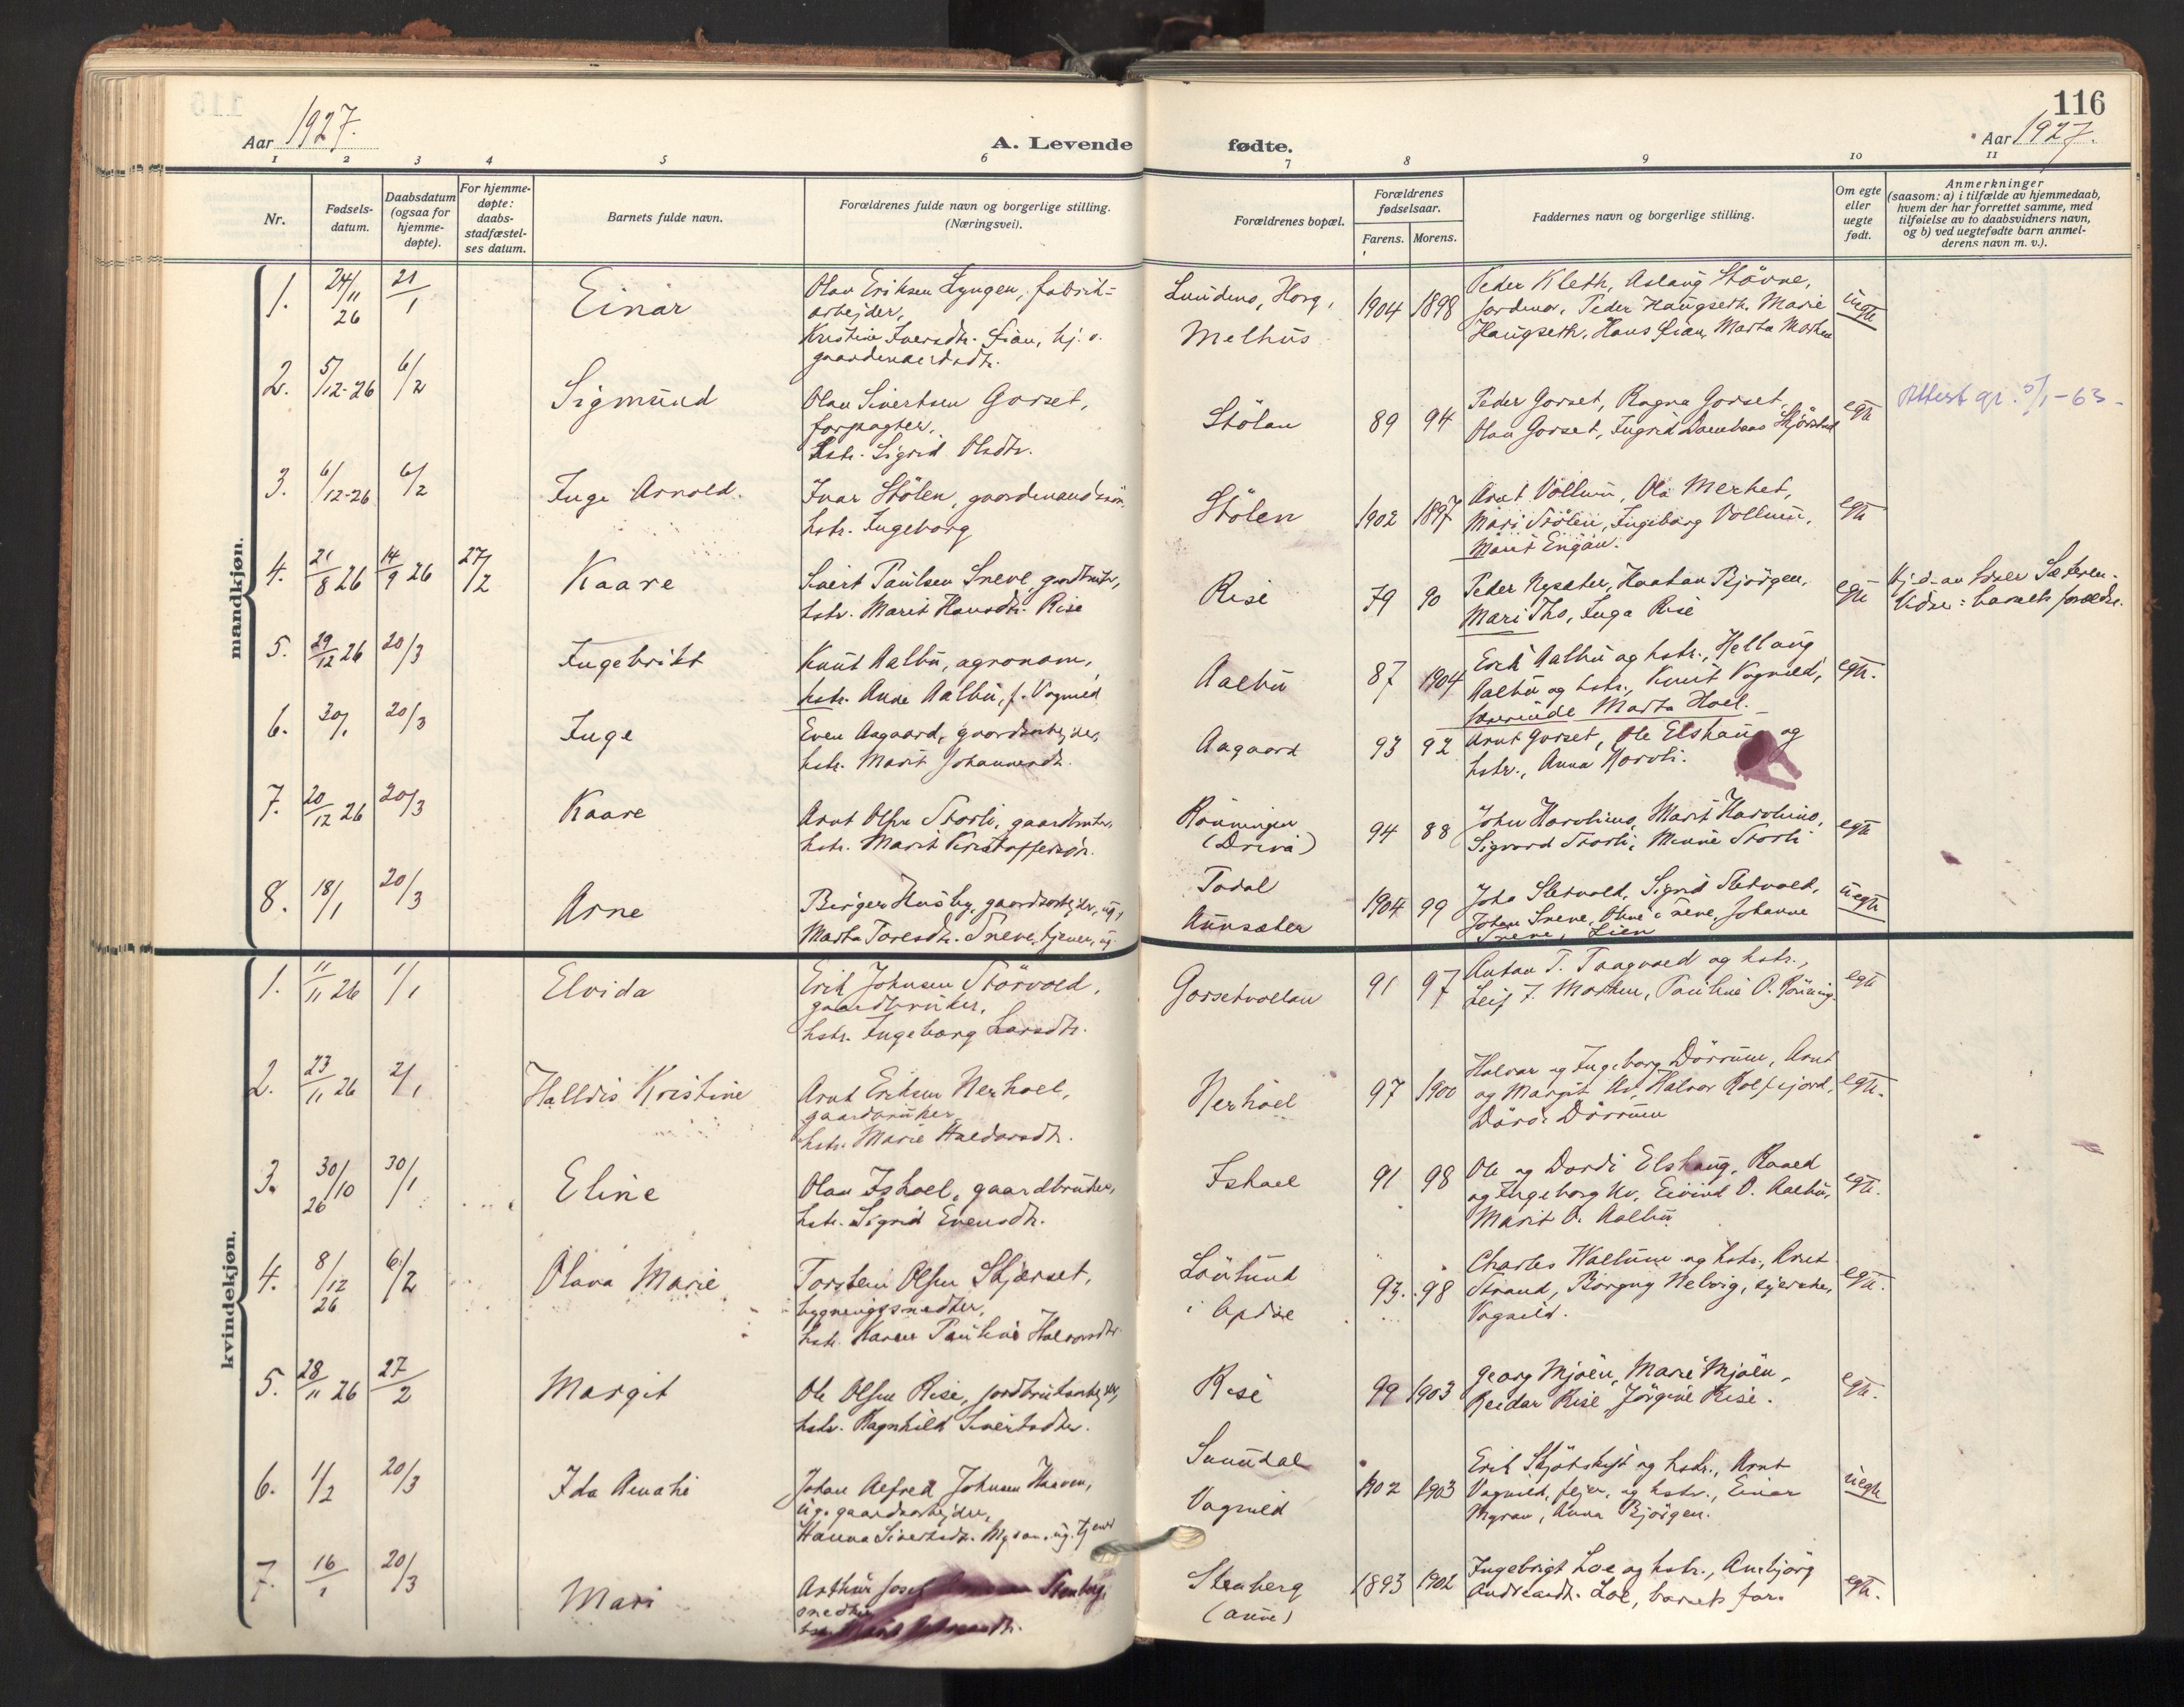 116
Aar 1927.
A. Levende fødte.
Aar 1927.
1 2 3 4 5 6 7 8 9 10 11
Nr.
Fødsels-
datum.
Daabsdatum
(ogsaa for
hjemme-
døpte).
For hjemme-
døpte:
daabs-
stadfæstel-
ses datum.
Barnets fulde navn.
Forældrenes fulde navn og borgerlige stilling.
(Næringsvei).
Forældrenes bopæl.
Forældrenes
fødselsaar.
Farens. Morens.
Faddernes navn og borgerlige stilling.
Om egte
eller
uegte
født.
Anmerkninger
(saasom: a) i tilfælde av hjemmedaab,
hvem der har forrettet samme, med
tilføielse av to daabsvidners navn,
og b) ved uegtefødte barn anmel-
derens navn m. v.).
mandkjøn.
1. 24/11 26 21/1 Einar
Olav Eriksen Lyngen, fabrik-
arbejder,
Lundemo, Horg,
Melhus
1904 1898
Peder Kleth, Aslaug Støvne,
Peder Haugseth, Marie
Haugseth, Hans Lian, Marta
uegte
2. 5/12-26 6/2 Sigmund
Olav Sivertsen Gorset,
forpagter,
hstr. Sigrid Olsdtr.
Stølan
89 94
Peder Gorset, Ragna Gorset,
Olav Gorset, Ingrid
egte
Attest gr. 5/1-63-
3. 6/12-26 6/2 Inge Arnold.
Ivar Stølen, gaardmandssøn,
hstr. Ingeborg
Stølen
1902 1897
Arnt Vollum, Ola Merket,
Mari Stølen, Ingeborg Vollum,
Marit Engan.
egte
4. 21/8 26 14/9 26 27/2 Kaare
Sivert Paulsen Sneve, gardbruker,
hstr. Marit Hansdtr. Rise
Rise
79 90
Peder Nysæter, Haakan Bjørgen,
Mari Tho, Inga Rise
egte
5. 29/12 26 20/3 Ingebrikt
Knut Aalbu, agronom,
hstr. Anne Aalbu, f. Vognild
Aalbu
87 1904
Erik Aalbu og hstr., Hellaug
Aalbu og hstr., Knut Vognild,
Marta Hoel.
egte.
6. 30/1 20/3 Inge
Even Aagaard, gaardsarbejder,
hstr. Marit Johannesdtr.
Aagaard
93 92
Arnt Gorset, Ole Elshaug og
hstr., Anna
7. 20/12 26 20/3 Kaare
Arnt Olsen Storli, gaardbruker,
hstr. Marit Kristoffersdr.
Rønningen
(Driva)
94 88
Sigvard Storli, Minne Storli
egte
8. 18/1 20/3 Arne
Birger Husby, gaardsarbejder, ug,
Marta Toresdtr. Sneve, tjener, ug.
Todal
Aunsæter
1904 99
John Sletvold, Sigrid Sletvold,
Johan Sneve, Johanne
Sneve, Lien
uegte
kvindekjøn.
1. 11/11 26 1/1 Elvida
Erik Johnsen Størvold,
gaardbruker,
hstr. Ingeborg Larsdtr.
Gorsetvollan
91 97
Anton T. Taagvold og hstr.,
egte
2. 23/11 26 2/1 Halldis Kristine
Arnt Eriksen Nerhoel,
gaardbruker,
hstr. Marie Haldorsdtr.
Nerhoel
97 1900
Halvor og Ingeborg Dørrum, Arnt
og Margit
Dordi Dørrum
egte.
3. 30/10 26 30/1 Eline
Olav Ishoel, gaardbruker,
hstr. Sigrid Evensdtr.
Ishoel
91 98
Ole og Dordi Elshaug,
og Ingeborg Eivind O. Aalbu,
Marit O. Aalbu
egte.
4. 8/12 26 6/2 Olava Marie
Torstein Olsen Skjærset,
bygningssnedker,
hstr. Karen Pauline Halvorsdtr.
Lønlund
i Opdal
93. 98
Charles Wallum og hstr., Arnt
Strand, Borgny Helvig,
Vognild.
egte.
5. 28/11 26 27/2 Margit
Ole Olsen Rise, jordbruksarbejder,
hstr. Ragnhild Sivertsdtr.
Rise
99 1903
Georg Mjøen, Marie Mjøen,
Reidar Rise, Jørgine Rise.
egte.
6. 1/2 20/3 Ida Amalie
Johan Alfred Johnsen Haaven,
ug. gaardsarbejder,
Hanna Sivertsdtr. Myran, ug. tjener
Sunndal
Vognild
1902 1903
Erik Skjøtskift og hstr., Arnt
Vognild, og hstr., Einar
Myran, Anna Bjørgen.
uegte
7. 16/1 20/3 Mari
Arthur Josef Stenberg,
snedker
Stenberg
(Aune)
1893 1902
Ingebrigt Loe og hstr., Anbjørg
Andreasdtr. Loe, barnets far.
egte.